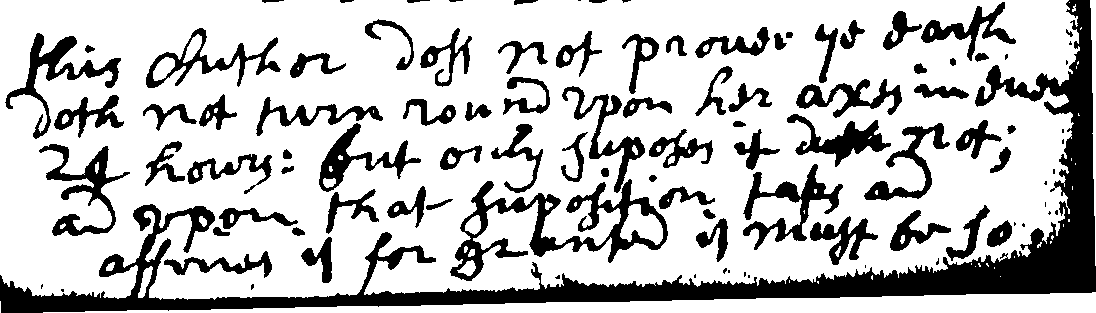 this Author dosh not prover ye Earth
doth not turn round vpon her axes in Every
24 hours: but only suposes it doth not;
and vpon that suposition taks and
affirmes it for granted it must be so.